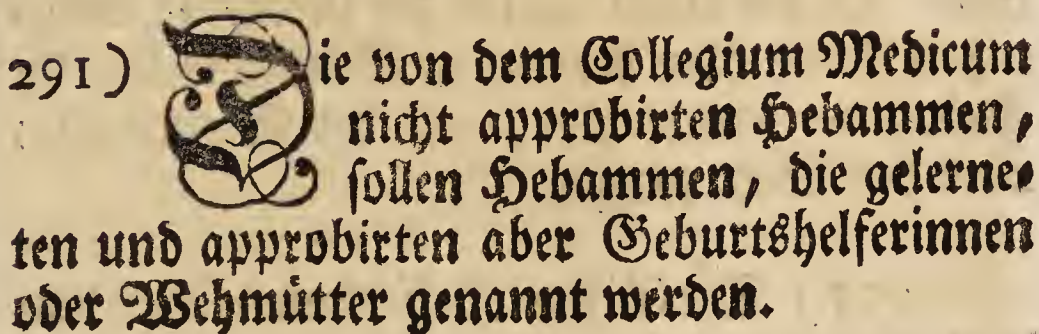 291) Die von dem Collegium Medicum
nicht approbirten Hebammen,
sollen Hebammen, die gelerne-
ten und approbirten aber Geburtshelferinnen
oder Wehmütter genannt werden.